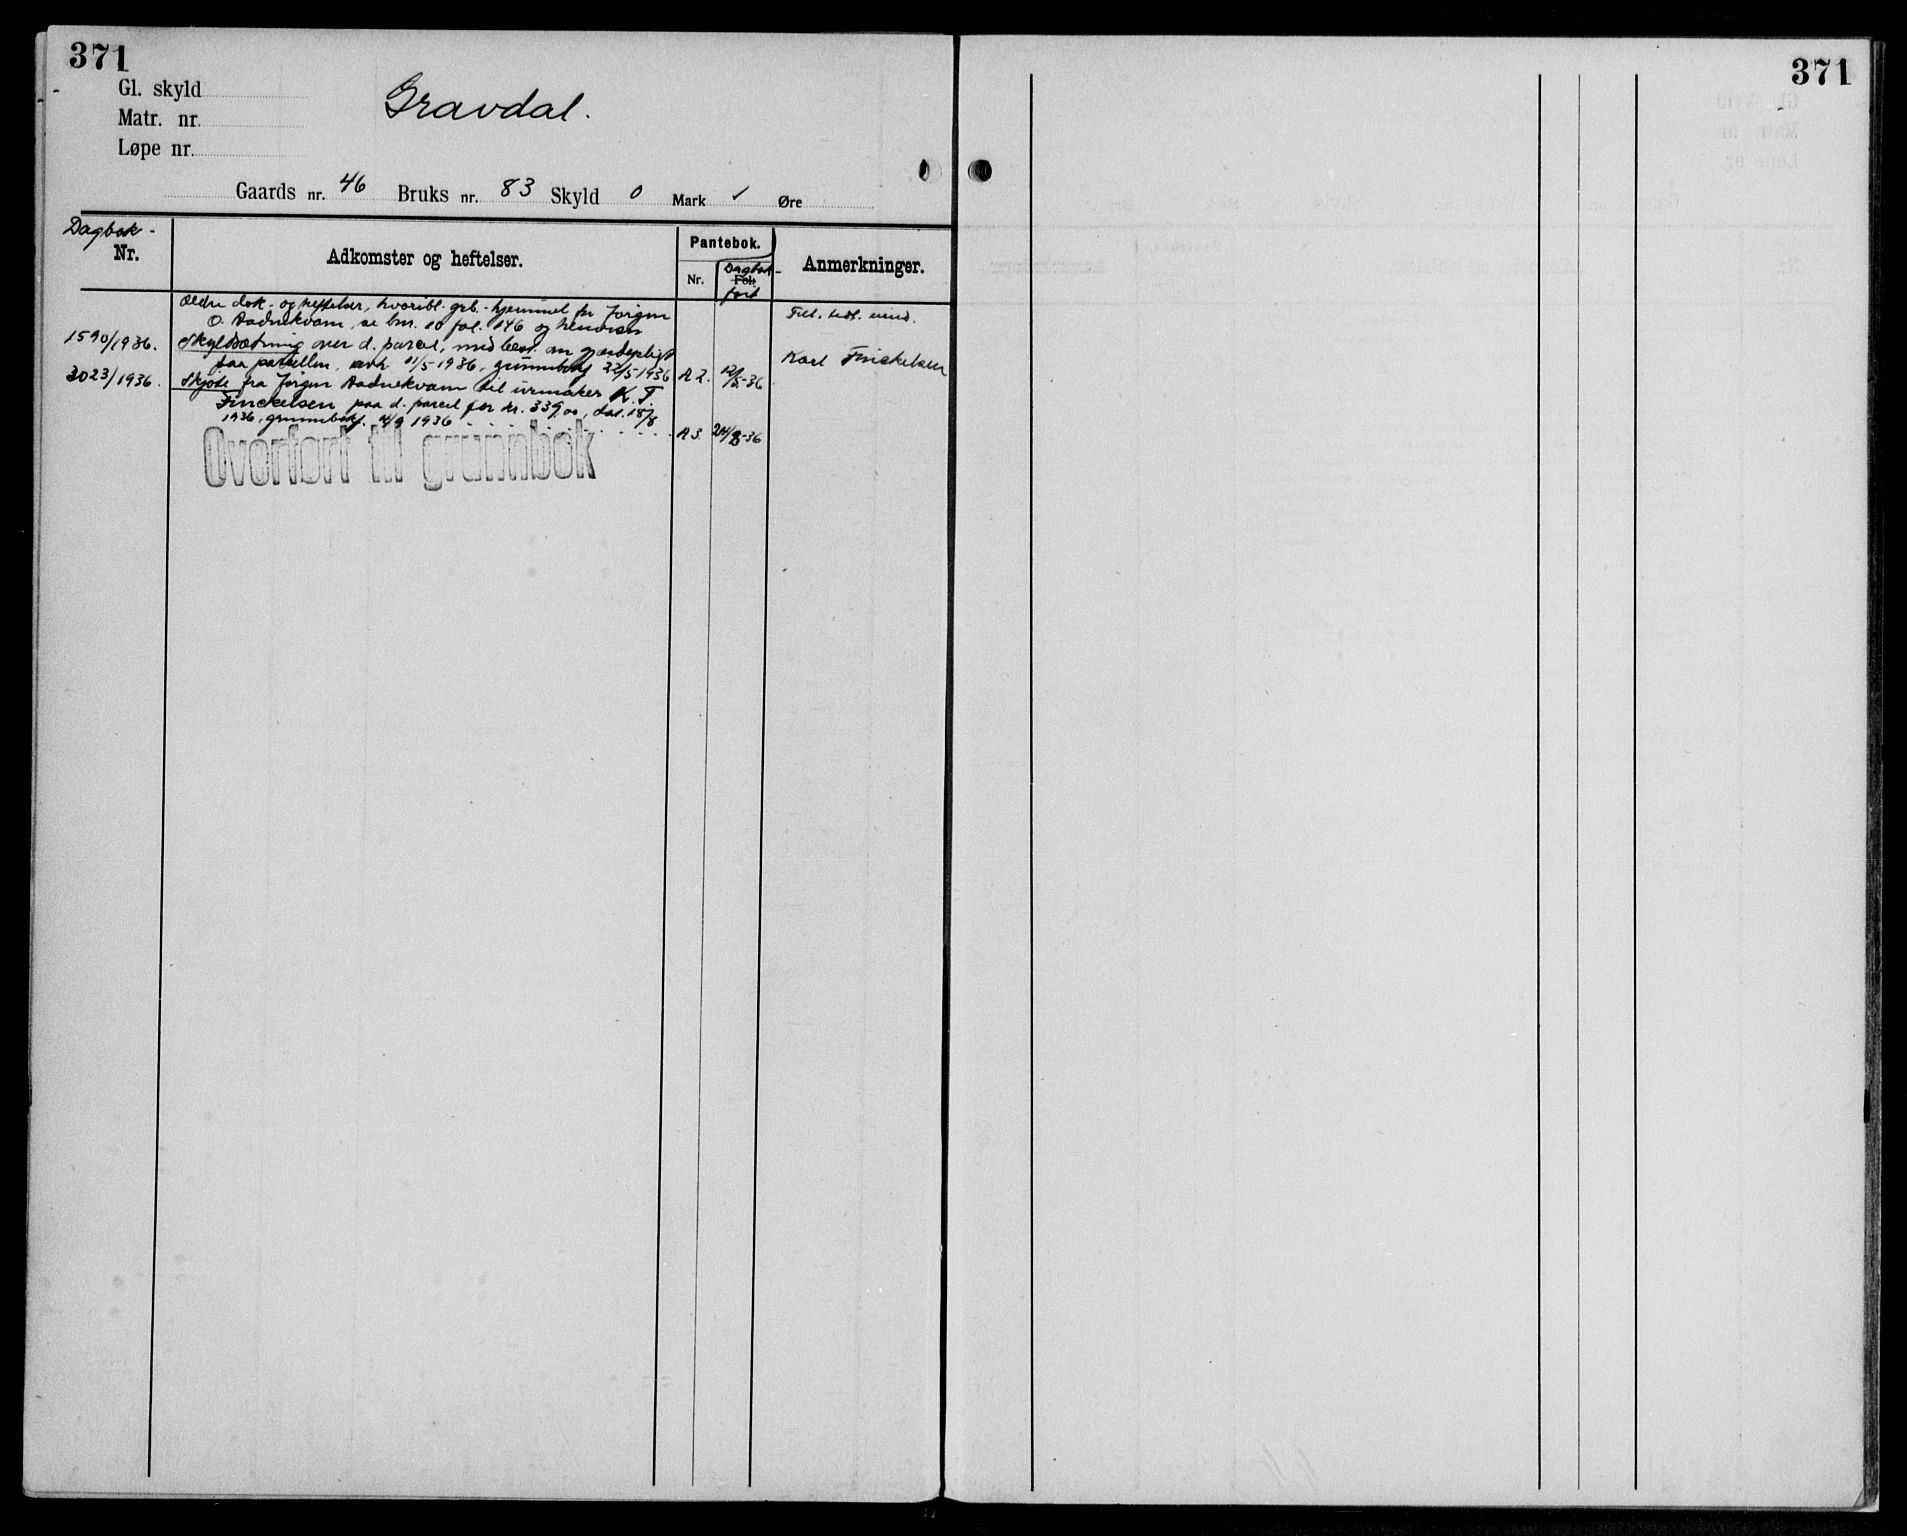 371
Gl. skyld
Matr. nr.
Løpe nr.
Gravdal.
Gaards nr. 46 Bruks nr. 83 Skyld 0 Mark 1 Øre
Dagbok-
Nr.
Adkomster og heftelser.
Pantebok.
Nr.
Dagbok-
Fol.
ført
Anmerkninger.
Ældre dok.- og heftelser, hvoribl. grb.-hjemmel for Jørgen
O. Aadnekvam, se bnr. 10 fol. 146 og henvisn.
Till. tidl. eiend.
1590/1936. Skyldsætning over d. parcel, med best. om gjerdepligt
paa parcellen, avh. 11/5-1936, grunnbokf. 22/5 1936 A 2. 12/5-36
Karl Finckelsen
3023/1936. Skjøte fra Jørgen Aadnekvam til urmaker K. F.
Finckelsen paa d. parcel for kr. 339,00, dat. 18/8
1936, grunnbokf. 4/9 1936 A 3. 24/8-36
Overført til grunnbok
371